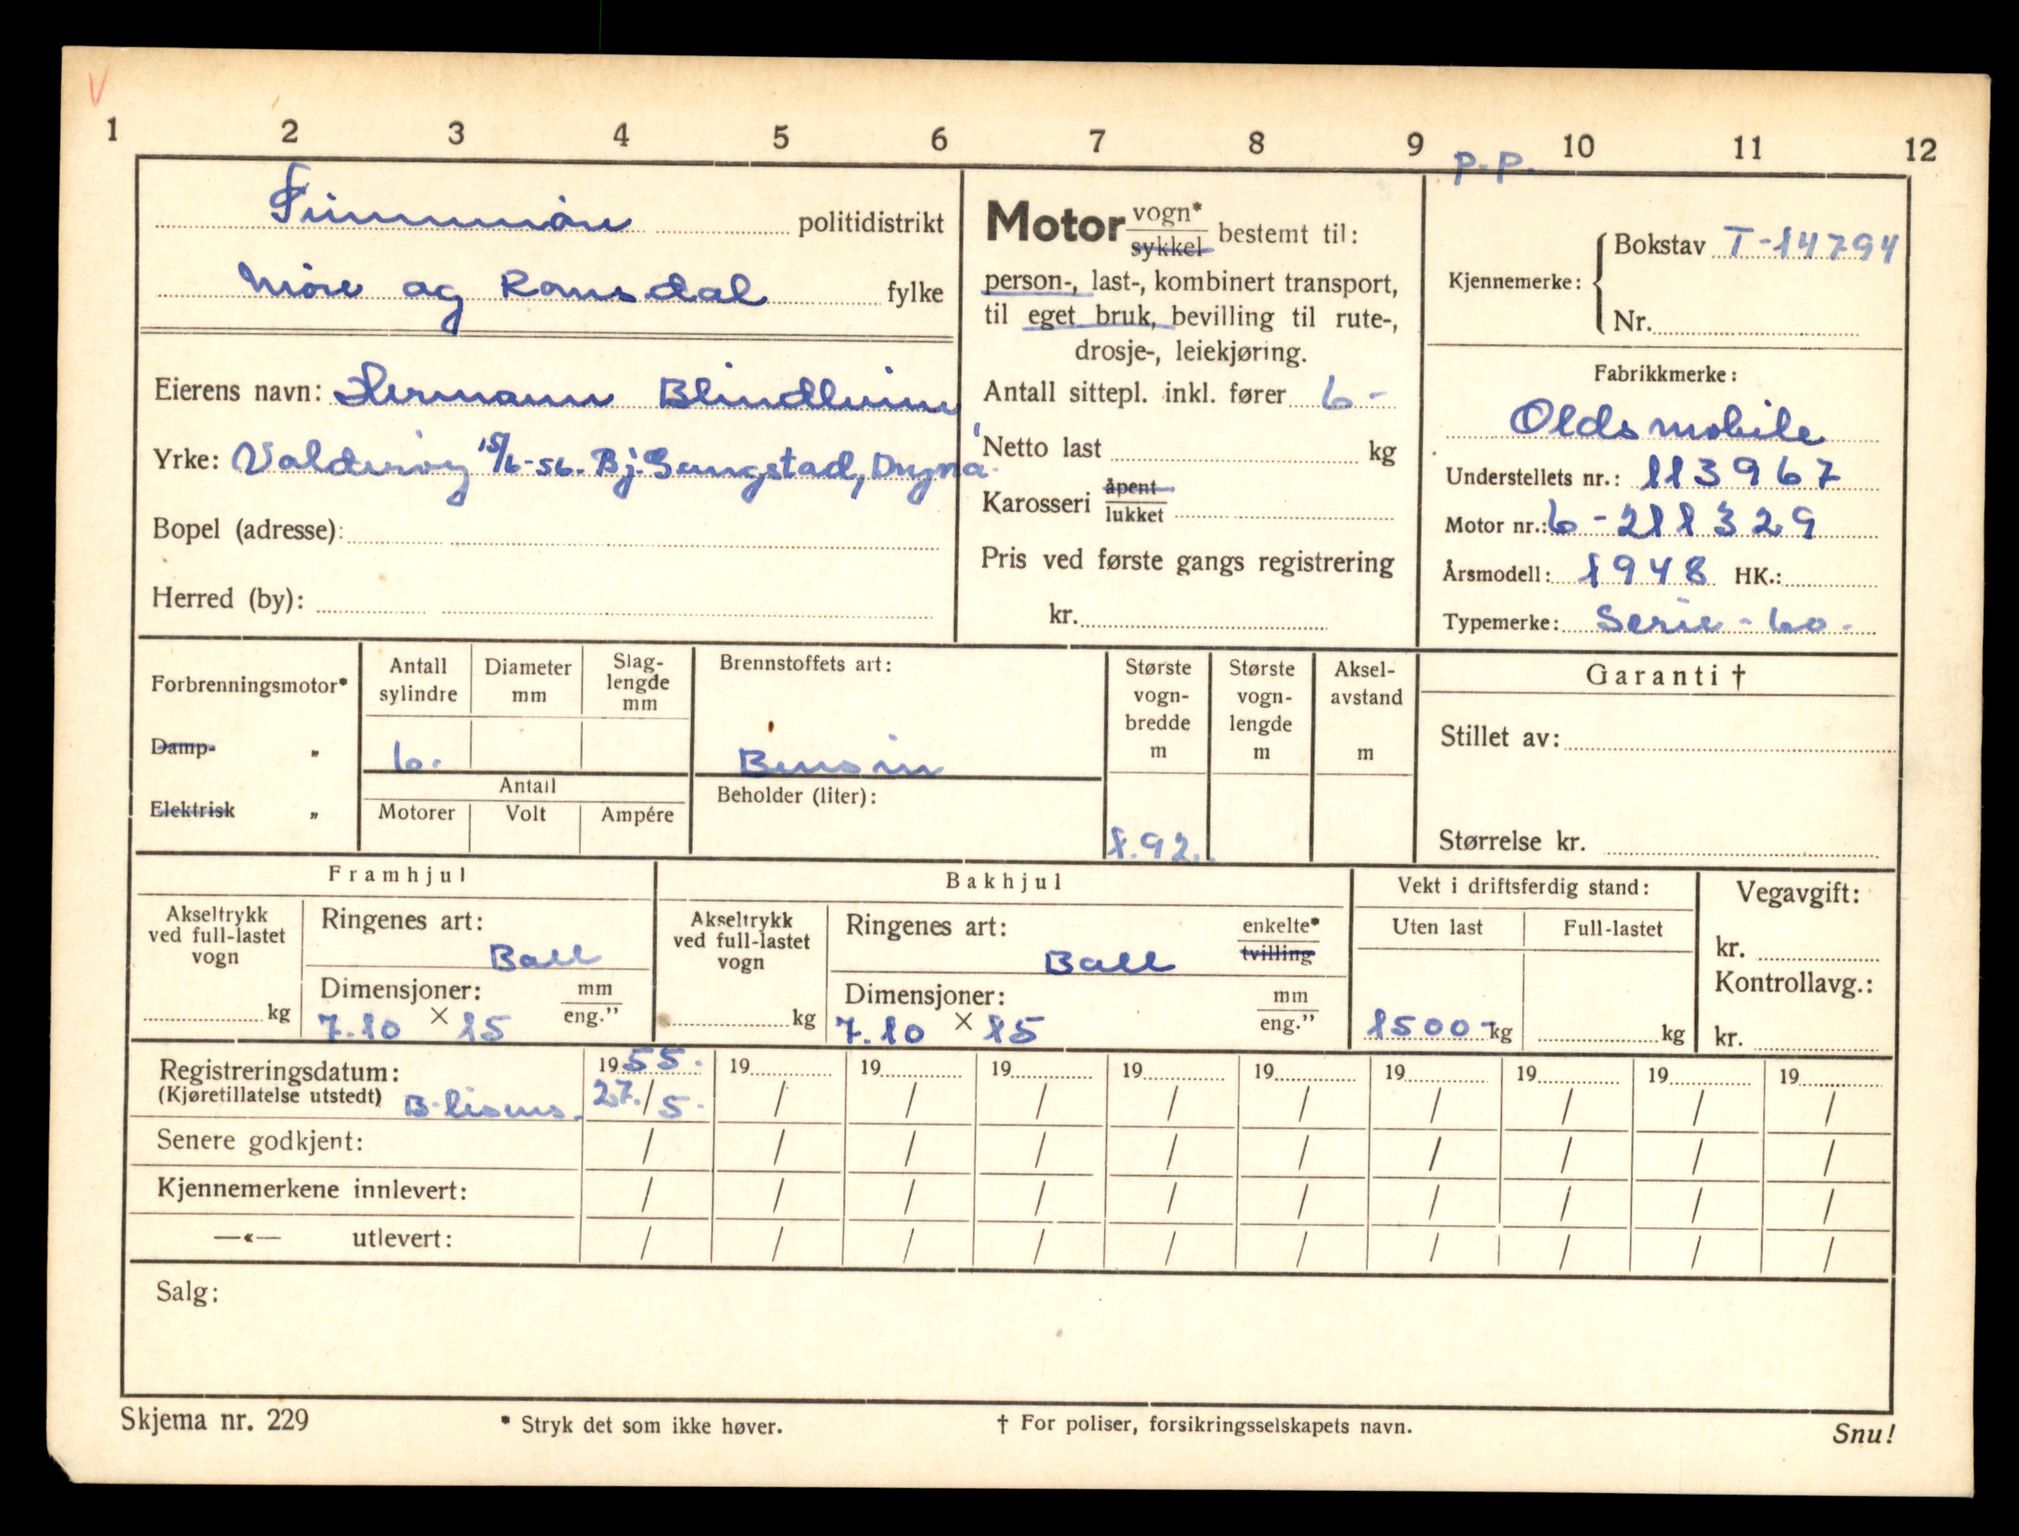 V
1 2 3 4 5 6 7 8 9 10 11 12
P.P.
Sunnmøre politidistrikt
Møre og Romsdal fylke
Eierens navn: Hermann Blindheim
Yrke: Valderøy 15/6-56. Bj. Gangstad, Dryna.
Bopel (adresse):
Herred (by):
Motor vogn* sykkel bestemt til:
person-, last-, kombinert transport,
til eget bruk, bevilling til rute-,
drosje-, leiekjøring.
Antall sittepl. inkl. fører 6-
Netto last kg
Karosseri åpent lukket
Pris ved første gangs registrering
kr.
Kjennemerke: Bokstav T-14794
Nr.
Fabrikkmerke:
Oldsmobile
Understellets nr.: 113967
Motor nr.: 6-211329
Årsmodell: 1948 HK.:
Typemerke: Serie-60-
Forbrenningsmotor*
Damp- „
Elektrisk „
Antall sylindre
Diameter mm
Slag-lengde mm
6.
Antall
Motorer Volt Ampére
Brennstoffets art:
Bensin
Beholder (liter):
Største vogn-bredde m
1.92.
Største vogn-lengde m
Aksel-avstand m
Garanti †
Stillet av:
Størrelse kr.
Framhjul
Akseltrykk ved full-lastet vogn
kg
Ringenes art:
Ball
Dimensjoner: mm eng.”
7.10 × 15
Bakhjul
Akseltrykk ved full-lastet vogn
kg
Ringenes art: enkelte* tvilling
Ball
Dimensjoner: mm eng.”
7.10 × 15
Vekt i driftsferdig stand:
Uten last Full-lastet
1500- kg kg
Vegavgift:
kr.
Kontrollavg.:
kr.
Registreringsdatum: 1955. 19 19 19 19 19 19 19 19 19
(Kjøretillatelse utstedt) B-lisens. 27./5. / / / / / / / / /
Senere godkjent: / / / / / / / / / /
Kjennemerkene innlevert: / / / / / / / / / /
—«— utlevert: / / / / / / / / / /
Salg:
Skjema nr. 229
* Stryk det som ikke høver.
† For poliser, forsikringsselskapets navn.
Snu!